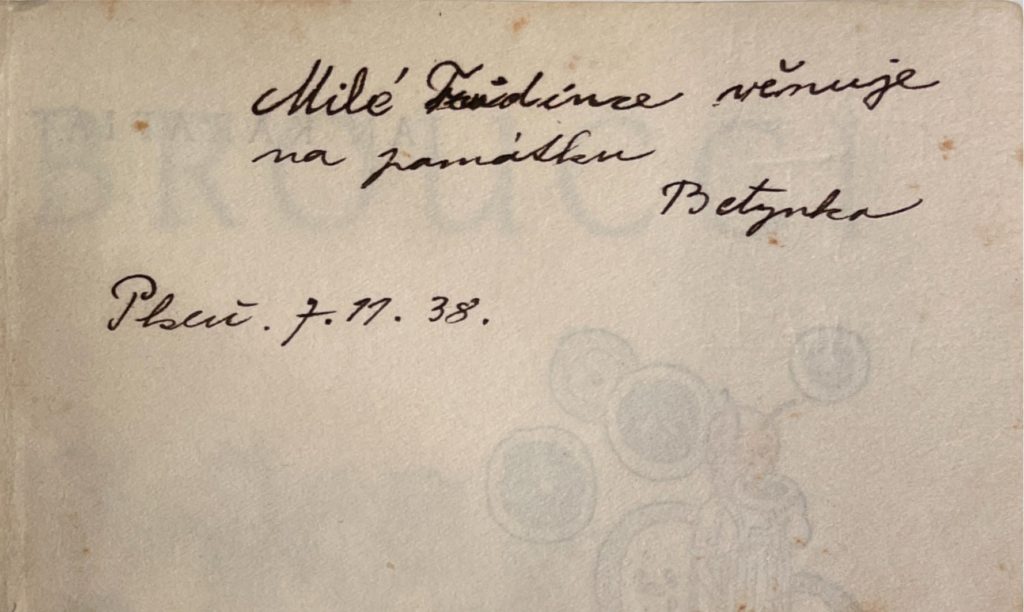 Milé věnuje
na památku
Betynka
Plzeň. 7.11.38.